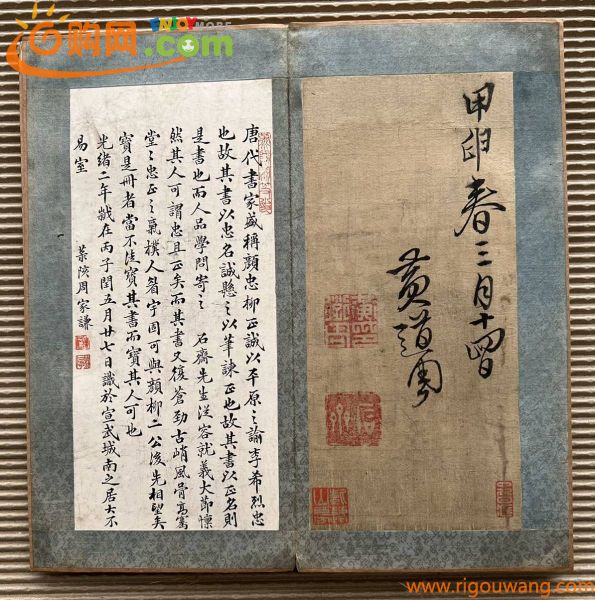 购网.com
ENJOY MORE
甲申春三月十四日
黄道周
唐代書家盛稱顏忠柳正誠以平原之諭李希烈忠
也故其書以忠名誠懸之以筆諫正也故其書以正名則
是書也而人品學問寄之 石齋先生從容就義大節懍
然其人可謂忠且正矣而其書又復蒼勁古峭風骨高騫
堂之忠正之氣樸人眉宇固可與顏柳二公後先相望矣
寶是冊者當不徒寶其書而寶其人可也
光緒二年歲在丙子閏五月廿七日識於宣武城南之居大不
易室
周家謙
www.rigouwang.com